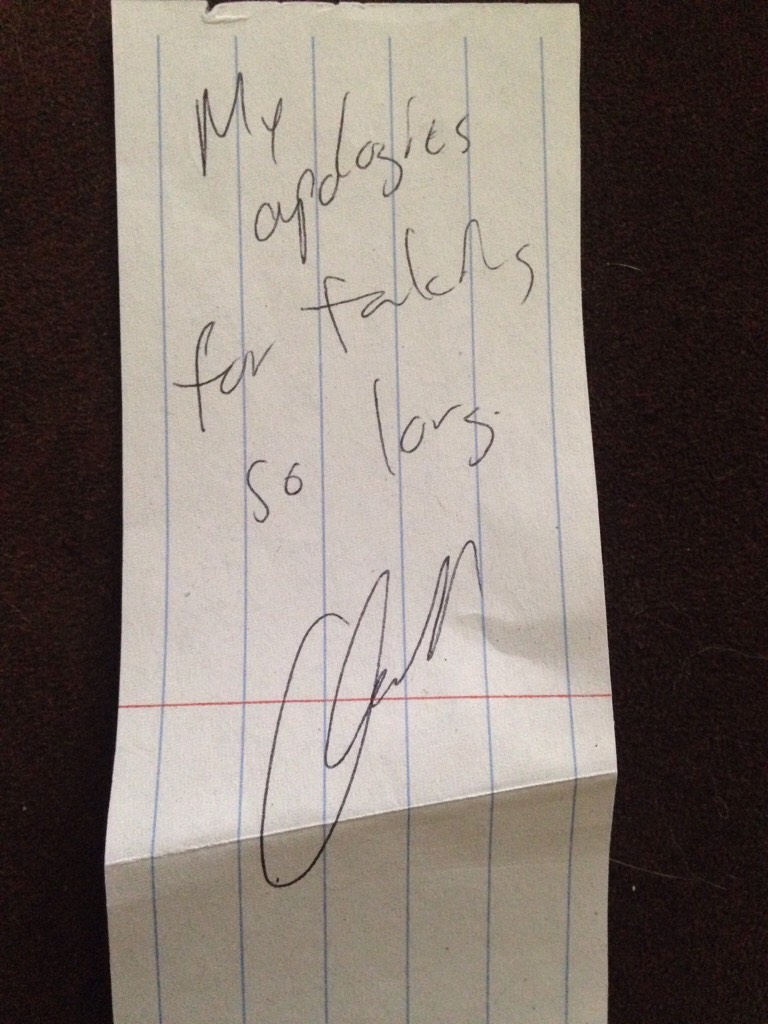 My
apologies
for taking
so long.